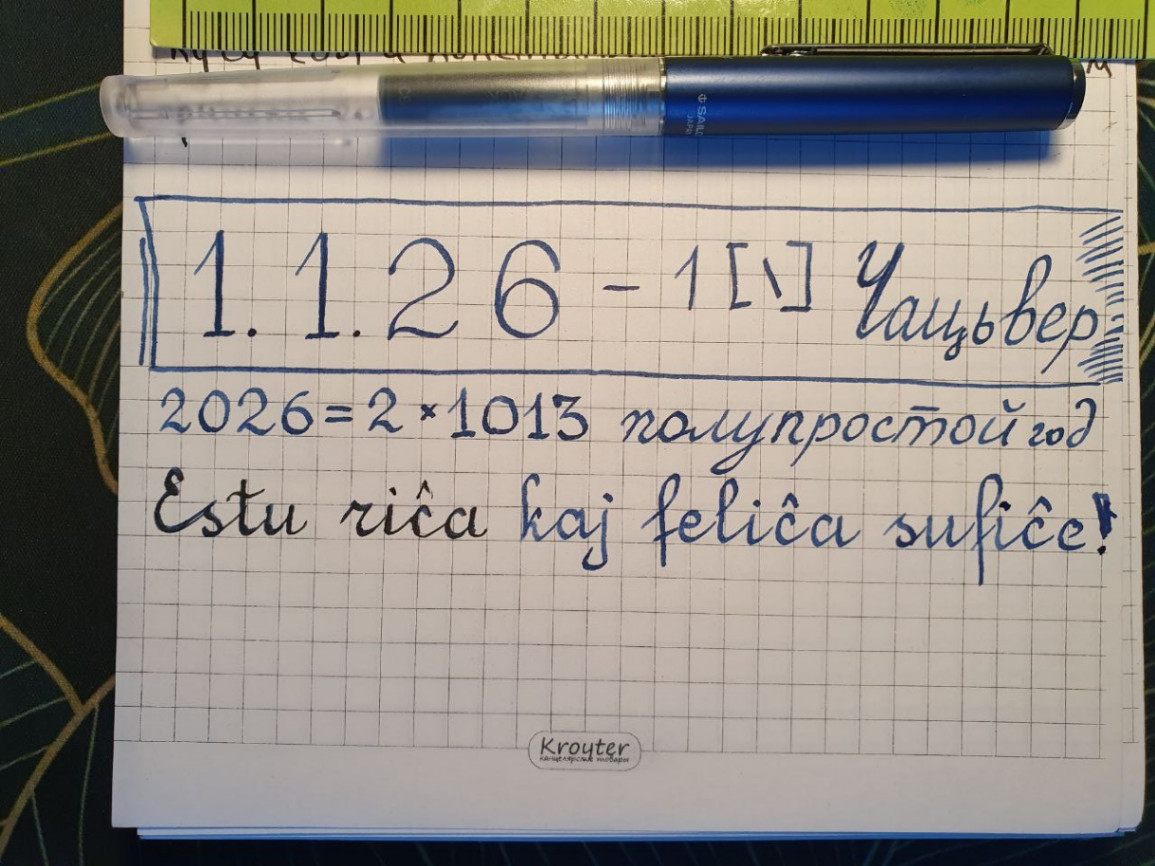 SAILOR
JAPAN
1.1.26 - 1 [\] Чацьвер
2026 = 2 × 1013 полупростой год
Estu riĉa kaj feliĉa sufiĉe!
Kroyter
канцелярские товары